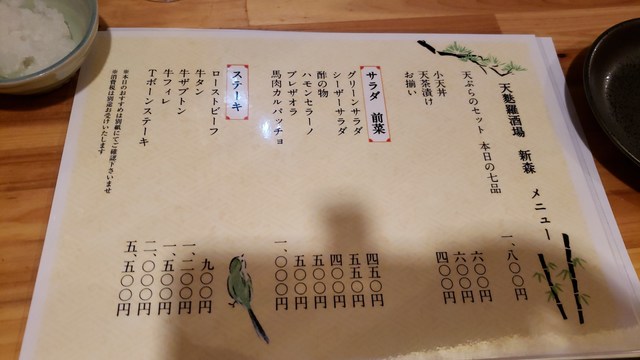 天麩羅酒場 新森 メニュー
天ぷらのセット 本日の七品 一、八〇〇円
小天丼 六〇〇円
天茶漬け 六〇〇円
お揃い 四〇〇円
サラダ 前菜
グリーンサラダ 四五〇円
シーザーサラダ 五五〇円
酢の物 四〇〇円
ハモンセラーノ 五五〇円
ブレザオラ 五〇〇円
馬肉カルパッチョ 一、〇〇〇円
ステーキ
ローストビーフ 九〇〇円
牛タン 一、二〇〇円
牛ザブトン 一、五〇〇円
牛フィレ 二、〇〇〇円
Tボーンステーキ 五、五〇〇円
※本日のおすすめは別紙にてご確認下さいませ
※消費税は別途お受けいたします